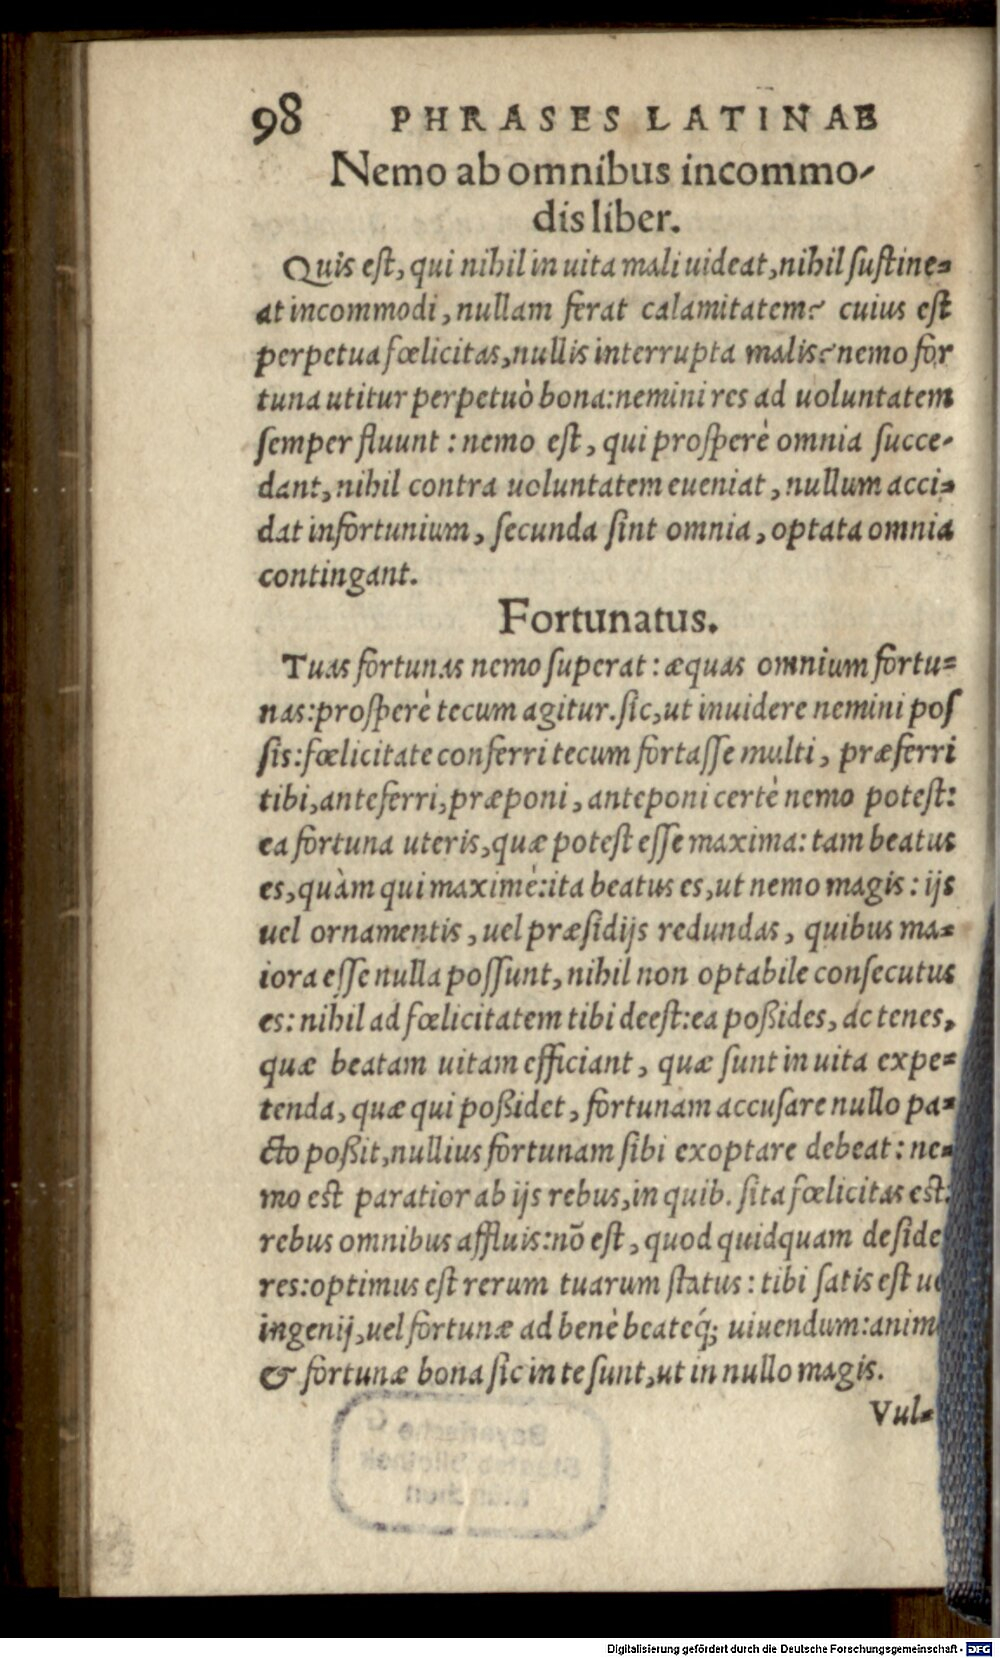 98 PHRASES LATINAE
Nemo ab omnibus incommo-
dis liber.
Quis est, qui nihil in uita mali uideat, nihil sustine=
at incommodi, nullam ferat calamitatem? cuius est
perpetua fœlicitas, nullis interrupta malis? nemo for
tuna utitur perpetuò bona: nemini res ad uoluntatem
semper fluunt: nemo est, qui prosperè omnia succe-
dant, nihil contra uoluntatem eueniat, nullum acci=
dat infortunium, secunda sint omnia, optata omnia
contingant.
Fortunatus.
Tuas fortunas nemo superat: æquas omnium fortu=
nas: prosperè tecum agitur. sic, ut inuidere nemini pos
sis: fœlicitate conferri tecum fortasse multi, præferri
tibi, anteferri, præponi, anteponi certè nemo potest:
ea fortuna uteris, quæ potest esse maxima: tam beatus
es, quàm qui maximè: ita beatus es, ut nemo magis: ijs
uel ornamentis, uel præsidijs redundas, quibus ma=
iora esse nulla possunt, nihil non optabile consecutus
es: nihil ad fœlicitatem tibi deest: ea poßides, ac tenes,
quæ beatam uitam efficiant, quæ sunt in uita expe=
tenda, quæ qui poßidet, fortunam accusare nullo pa=
cto poßit, nullius fortunam sibi exoptare debeat: ne=
mo est paratior ab ijs rebus, in quib. sita fœlicitas est:
rebus omnibus affluis: nõ est, quod quidquam deside
res: optimus est rerum tuarum status: tibi satis est
ingenij, uel fortunæ ad benè beateq́; uiuendum: anim
& fortunæ bona sic in te sunt, ut in nullo magis.
Vul=
Bayerische
Staatsbibliothek
München
Digitalisierung gefördert durch die Deutsche Forschungsgemeinschaft - DFG